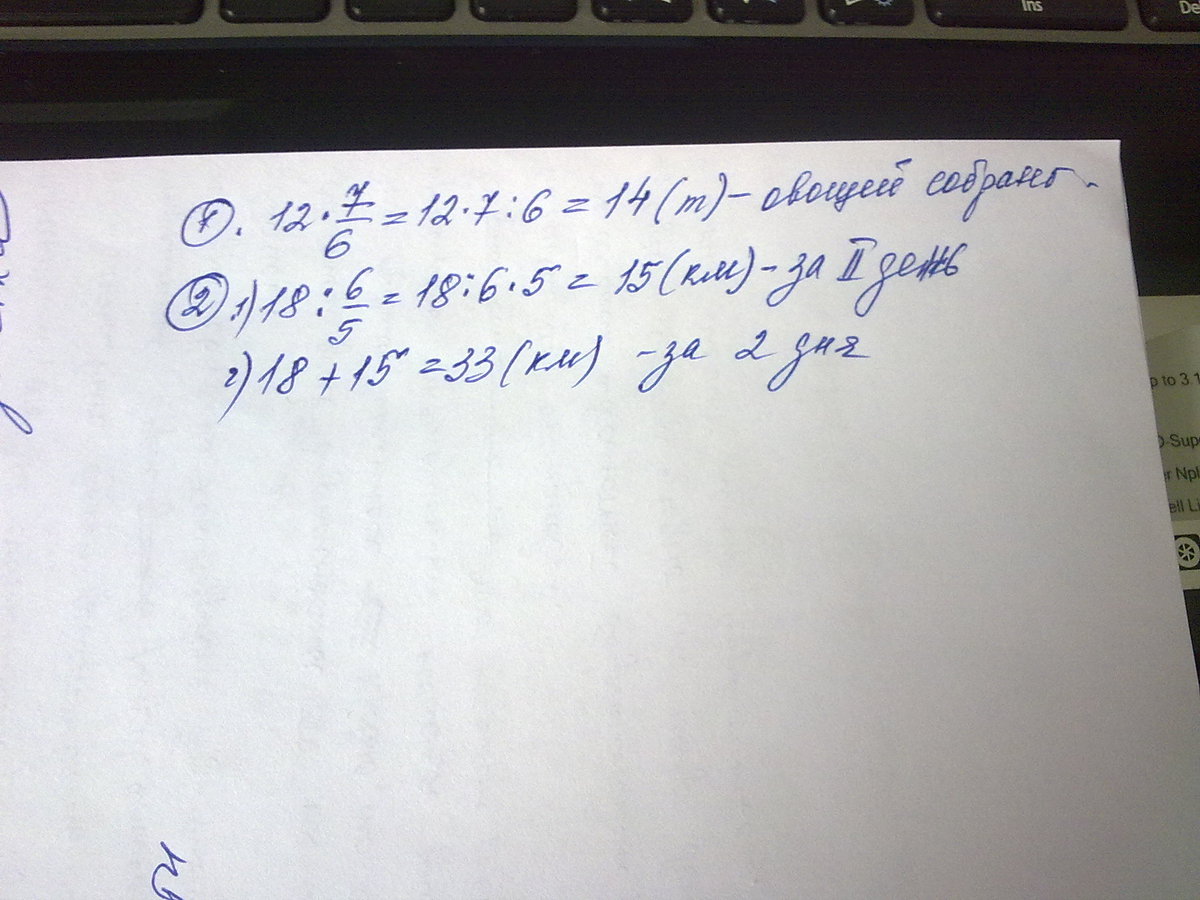 Ins
De
①. 12 · 7/6 = 12·7:6 = 14 (т) – овощей собрано.
② 1) 18 : 6/5 = 18:6·5 = 15 (км) – за II день
2) 18 + 15 = 33 (км) – за 2 дня
p to 3.1
D-Sup
er Npl
ell Li